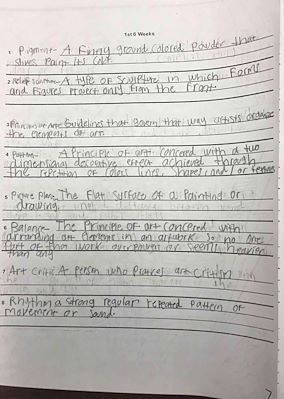 1st 6 Weeks
1 Pigment- A Finely ground Colored Powder that
gives Paint its Color
2 Relief Sculpture- A type of Sculpture in which Forms
and Figures Project only From the Front.
3 Principles of Art- Guidelines that govern that way artists organize
the elements of art.
4 Pattern- A Principle of art concered with a two
dimensional decorative effect achieved through
the repetition of colors, lines, Shapes, and / or textures
5 Picture Plane- The Flat Surface of a Painting or
drawing.
6 Balance- The Principle of art Concered with
arranging art elements in an artwork so no one
Part of that work overpowers or Seems heavier
than any
7 Art Critic- A Person who Practices art Critism
8 Rhythm- a strong regular repeated Pattern of
Movement or Sound.